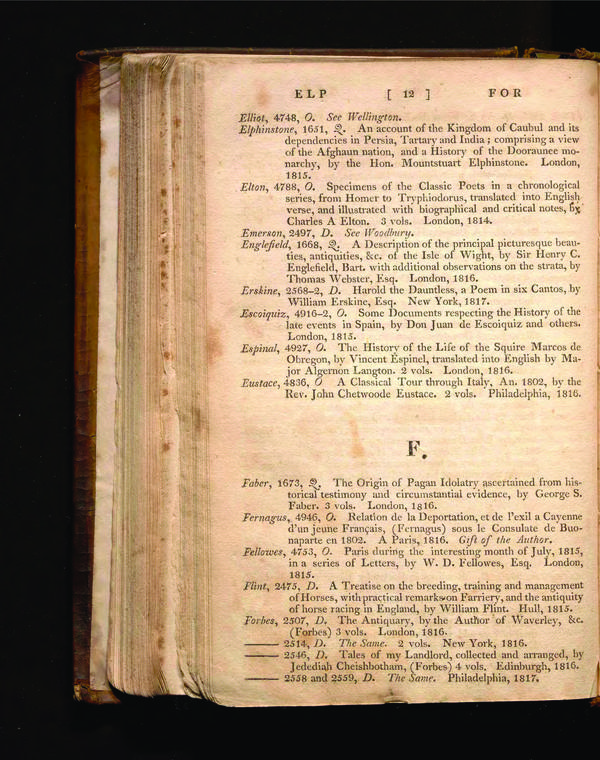 ELP [ 12 ] FOR
Elliot, 4748, O. See Wellington.
Elphinstone, 1651, Q. An account of the Kingdom of Caubul and its
dependencies in Persia, Tartary and India; comprising a view
of the Afghaun nation, and a History of the Dooraunee mo-
narchy, by the Hon. Mountstuart Elphinstone. London,
1815.
Elton, 4788, O. Specimens of the Classic Poets in a chronological
series, from Homer to Tryphiodorus, translated into English
verse, and illustrated with biographical and critical notes, by
Charles A Elton. 3 vols. London, 1814.
Emerson, 2497, D. See Woodbury.
Englefield, 1668, Q. A Description of the principal picturesque beau-
ties, antiquities, &c. of the Isle of Wight, by Sir Henry C.
Englefield, Bart. with additional observations on the strata, by
Thomas Webster, Esq. London, 1816.
Erskine, 2568-2, D. Harold the Dauntless, a Poem in six Cantos, by
William Erskine, Esq. New York, 1817.
Escoiquiz, 4916-2, O. Some Documents respecting the History of the
late events in Spain, by Don Juan de Escoiquiz and others.
London, 1815.
Espinal, 4927, O. The History of the Life of the Squire Marcos de
Obregon, by Vincent Espinel, translated into English by Ma-
jor Algernon Langton. 2 vols. London, 1816.
Eustace, 4836, O A Classical Tour through Italy, An. 1802, by the
Rev. John Chetwoode Eustace. 2 vols. Philadelphia, 1816.
F.
Faber, 1673, Q. The Origin of Pagan Idolatry ascertained from his-
torical testimony and circumstantial evidence, by George S.
Faber. 3 vols. London, 1816.
Fernagus, 4946, O. Relation de la Deportation, et de l'exil a Cayenne
d'un jeune Français, (Fernagus) sous le Consulate de Buo-
naparte en 1802. A Paris, 1816. Gift of the Author.
Fellowes, 4753, O. Paris during the interesting month of July, 1815,
in a series of Letters, by W. D. Fellowes, Esq. London,
1815.
Flint, 2475, D. A Treatise on the breeding, training and management
of Horses, with practical remarks on Farriery, and the antiquity
of horse racing in England, by William Flint. Hull, 1815.
Forbes, 2507, D. The Antiquary, by the Author of Waverley, &c.
(Forbes) 3 vols. London, 1816.
—— 2514, D. The Same. 2 vols. New York, 1816.
—— 2546, D. Tales of my Landlord, collected and arranged, by
Jedediah Cheishbotham, (Forbes) 4 vols. Edinburgh, 1816.
—— 2558 and 2559, D. The Same. Philadelphia, 1817.